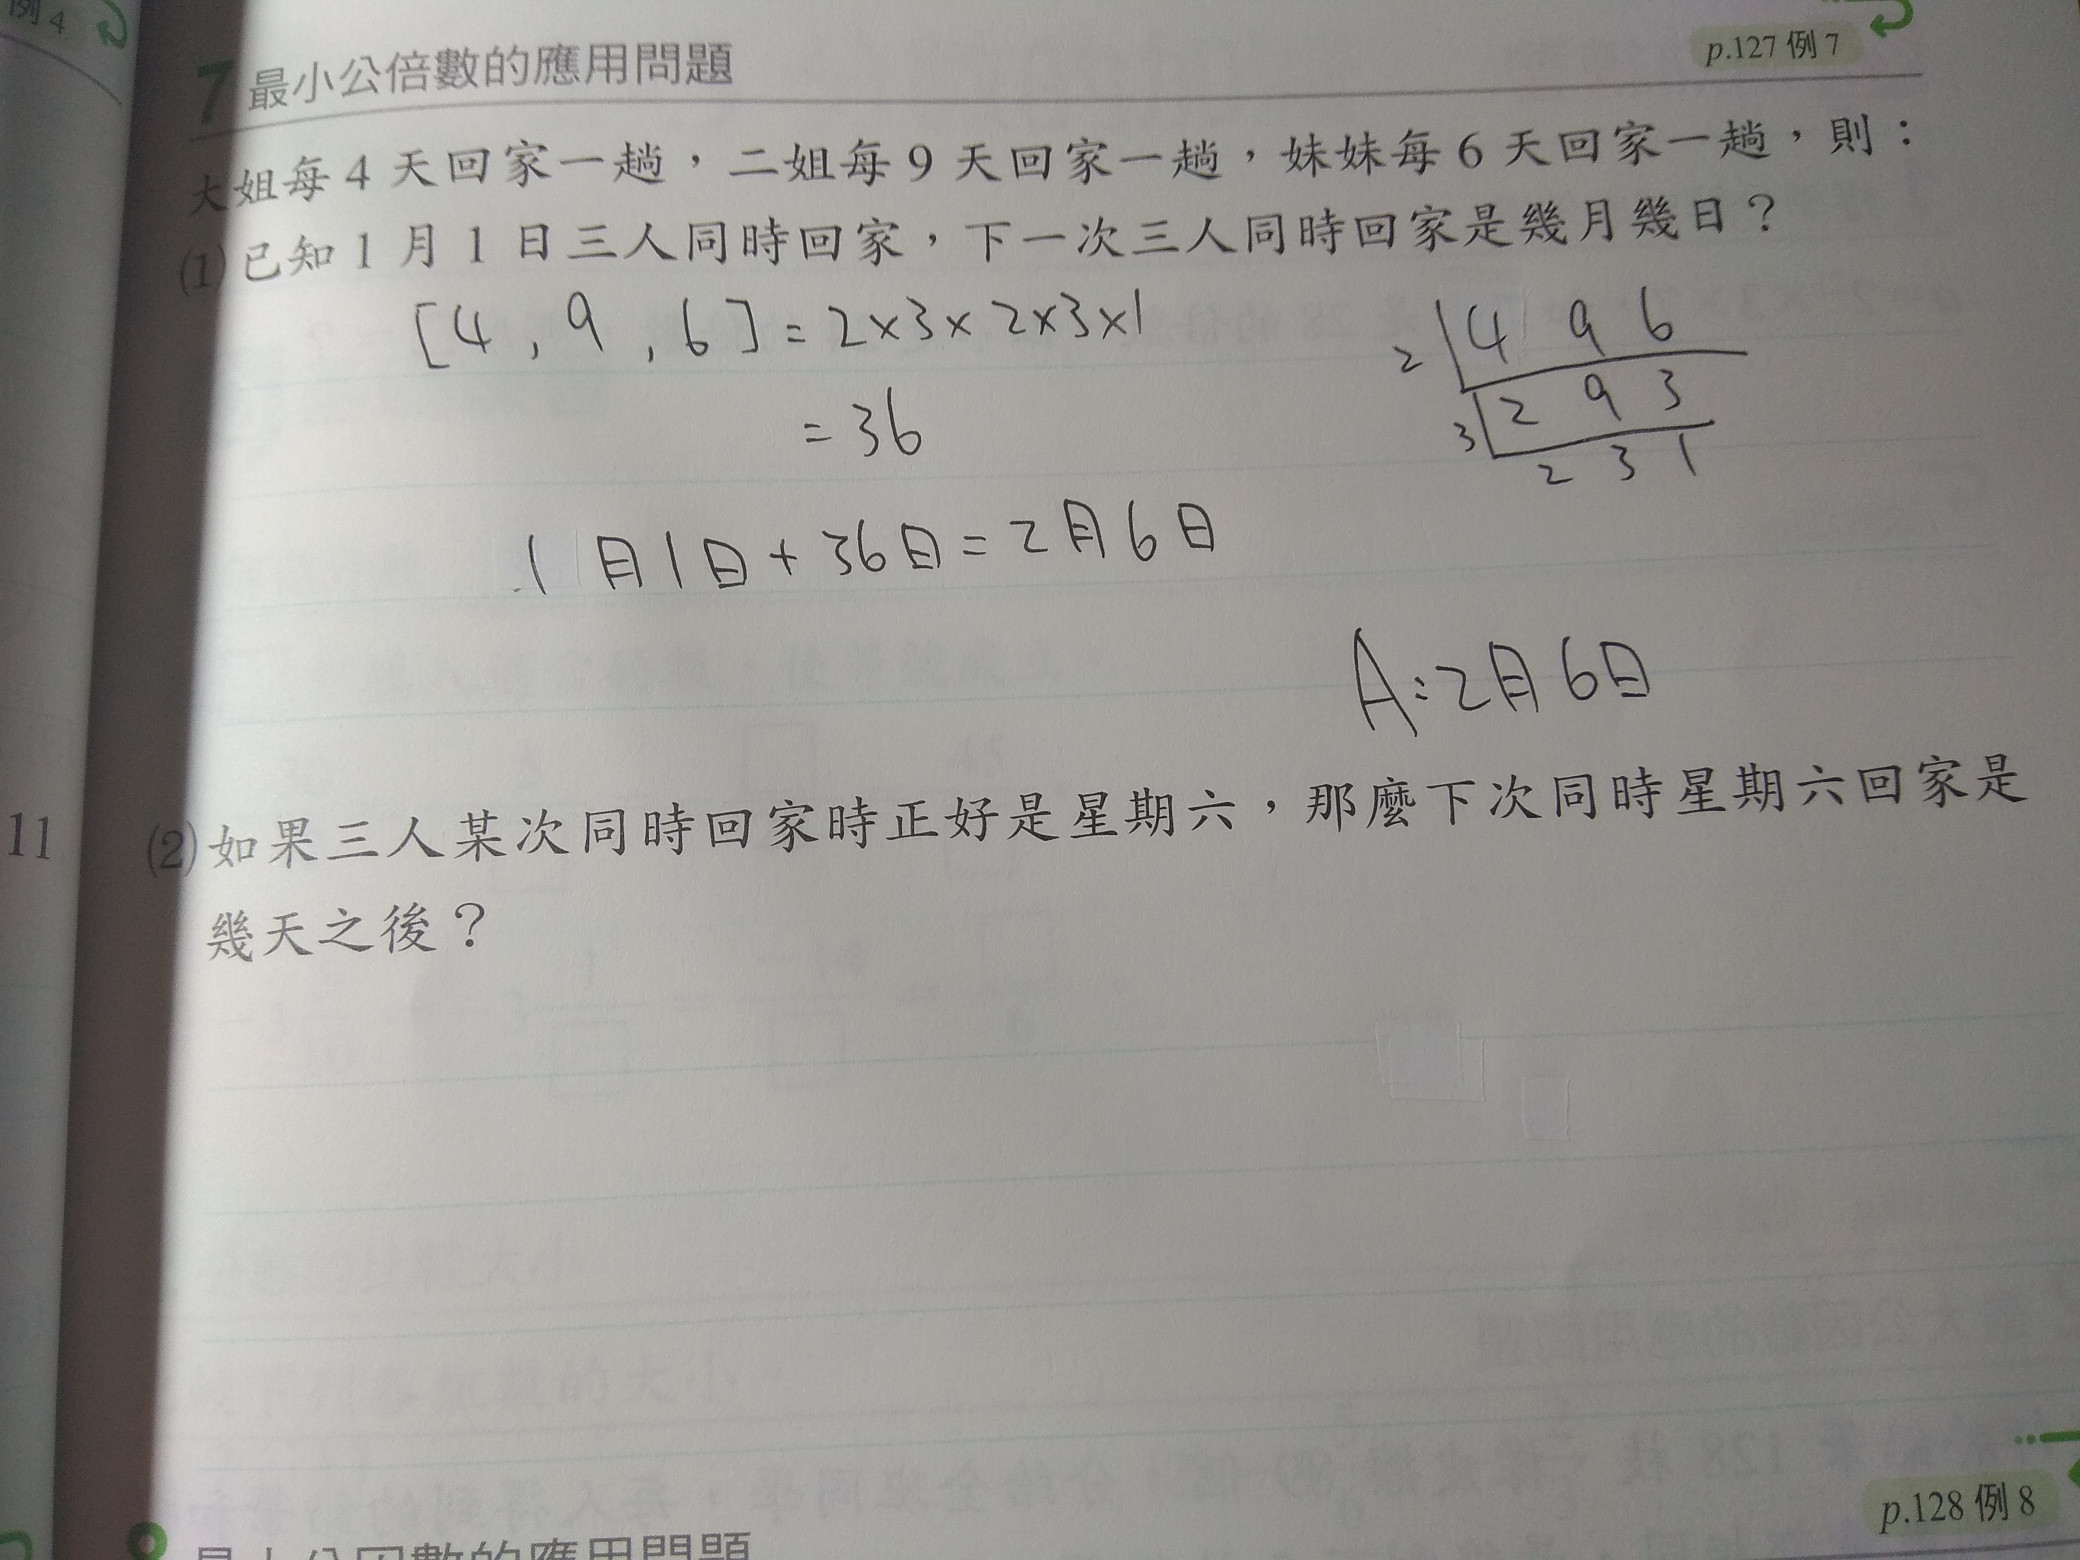 例4
7 最小公倍數的應用問題
p.127 例 7
大姐每 4 天回家一趟，二姐每 9 天回家一趟，妹妹每 6 天回家一趟，則：
(1) 已知 1 月 1 日三人同時回家，下一次三人同時回家是幾月幾日？
[4, 9, 6] = 2×3×2×3×1
= 36
2 4 9 6
3 2 9 3
2 3 1
1月1日+36日=2月6日
A:2月6日
11
(2) 如果三人某次同時回家時正好是星期六，那麼下次同時星期六回家是
幾天之後？
p.128 例 8
8 最大公因數的應用問題